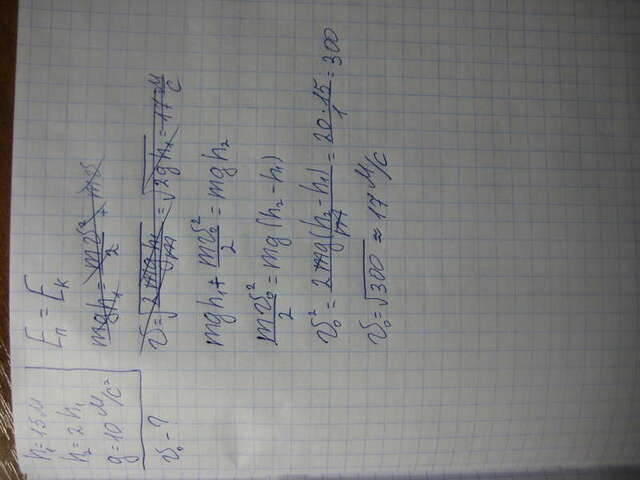 h₁ = 15 м
h₂ = 2 h₁
g = 10 м/с²
v₀ - ?
Eп = Eк
mgh₁ = mv²/2
v = √(2mgh₁/m) = √(2gh₁) = 17 м/с
mgh₁ + mv₀²/2 = mgh₂
mv₀²/2 = mg(h₂ - h₁)
v₀² = 2mg(h₂ - h₁)/m = 20 · 15/1 = 300
v₀ = √300 ≈ 17 м/с